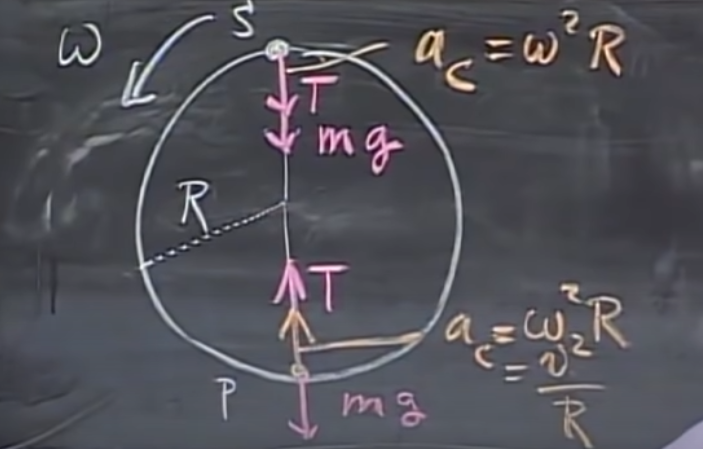 ω
S
a_c = ω²R
T
mg
R
T
a_c = ω²R
= v²/R
P
mg